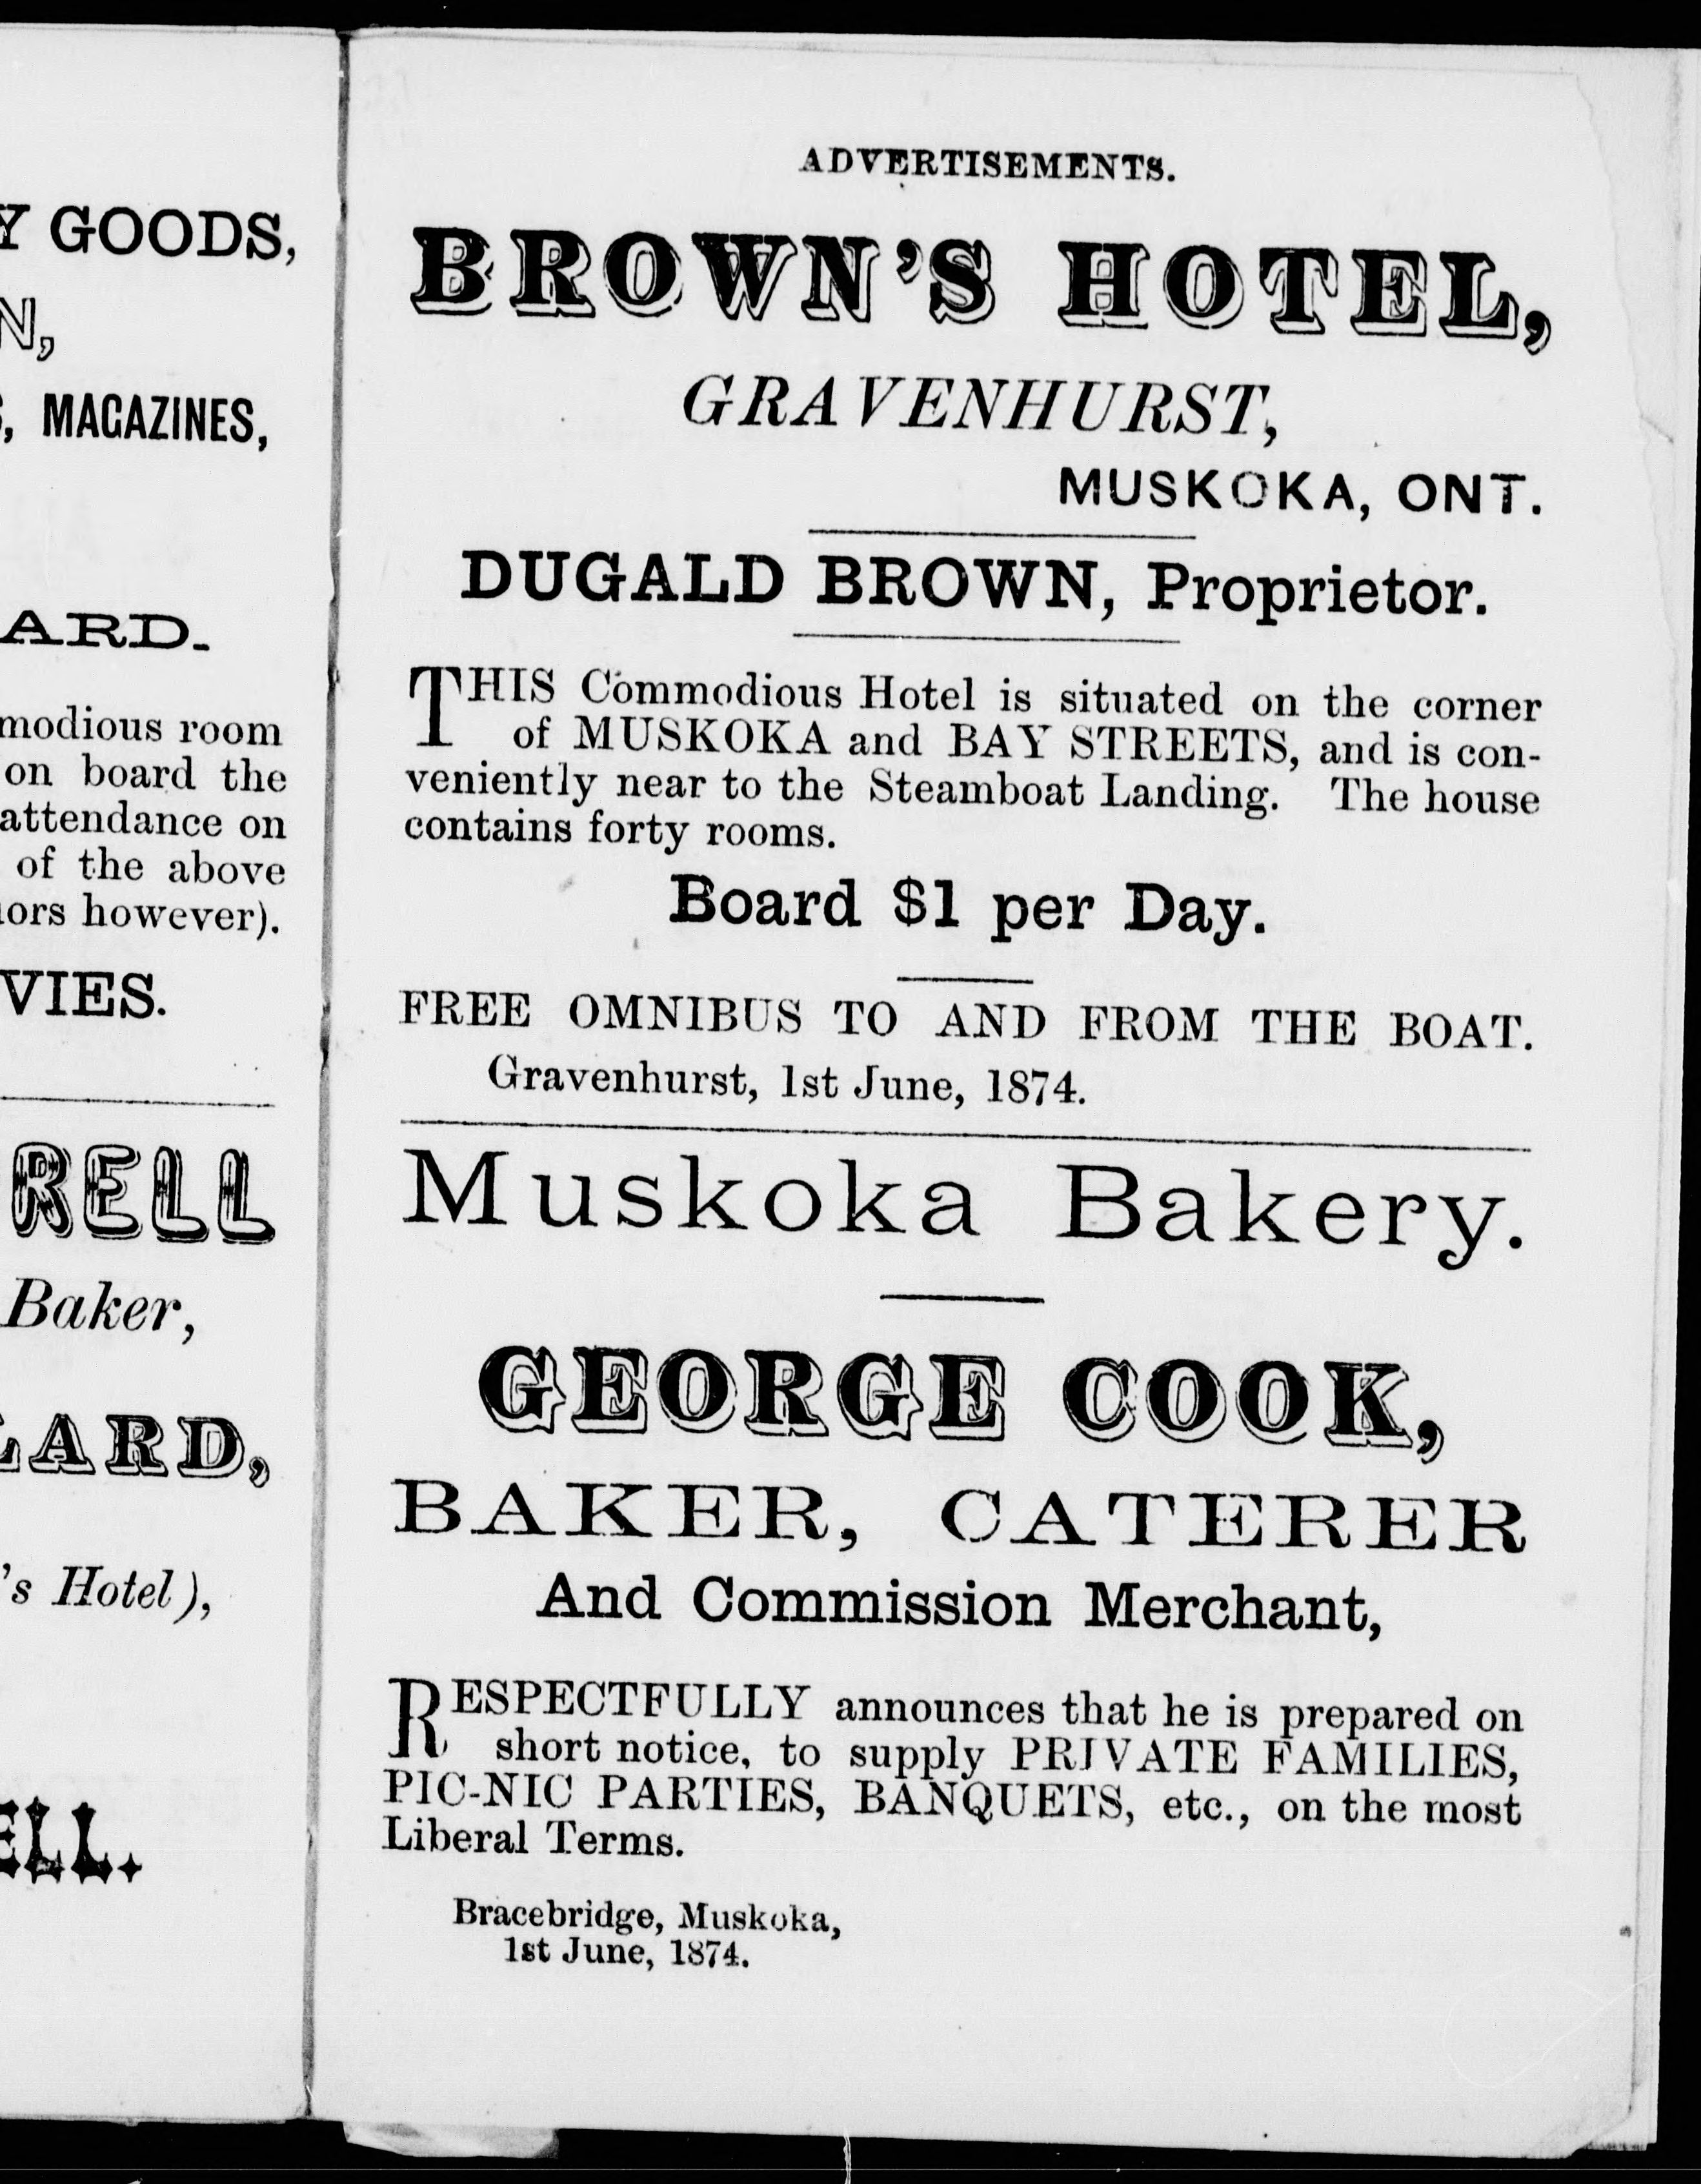 GOODS,
MAGAZINES,
room
on board the
attendance on
of the above
however).
Baker,
's Hotel),
ADVERTISEMENTS.
BROWN'S HOTEL,
GRAVENHURST,
MUSKOKA, ONT.
DUGALD BROWN, Proprietor.
THIS Commodious Hotel is situated on the corner
of MUSKOKA and BAY STREETS, and is con-
veniently near to the Steamboat Landing. The house
contains forty rooms.
Board $1 per Day.
FREE OMNIBUS TO AND FROM THE BOAT.
Gravenhurst, 1st June, 1874.
Muskoka Bakery.
GEORGE COOK,
BAKER, CATERER
And Commission Merchant,
RESPECTFULLY announces that he is prepared on
short notice, to supply PRIVATE FAMILIES,
PIC-NIC PARTIES, BANQUETS, etc., on the most
Liberal Terms.
Bracebridge, Muskoka,
1st June, 1874.